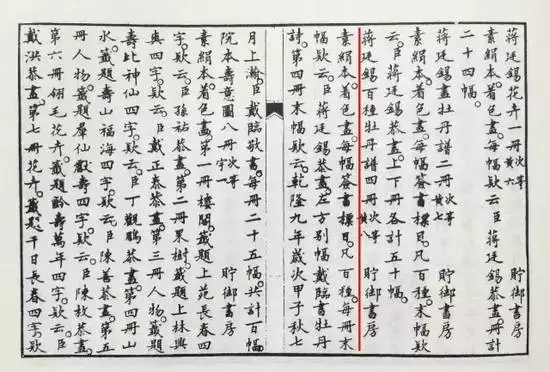 蔣廷錫花卉一冊 次等黃六 貯御書房
素絹本着色畫。每幅款云臣蔣廷錫恭畫。冊計
二十四幅。
蔣廷錫畫牡丹譜二冊 次等黃七 貯御書房
素絹本着色畫。每幅簽書標目。凡百種。末幅款
云。臣蔣廷錫恭畫。上下冊各計五十幅。
蔣廷錫百種牡丹譜四冊 次等黃八 貯御書房
素絹本着色畫。每幅簽書標目。凡百種。每冊末
幅款云。臣蔣廷錫恭畫。左方別幅戴臨書牡丹
詩。第四冊末幅款云。乾隆九年歲次甲子秋七
月上澣。臣戴臨敬書。每冊二十五幅。共計百幅
院本壽意圖八冊 宇一 貯御書房
素絹本着色畫。第一冊樓閣。籤題上苑長春四
字。款云。臣孫祜恭畫。第二冊果樹。籤題上林
四字。款云。臣戴正泰恭畫。第三冊人物。籤題
壽比神仙四字。款云。臣丁觀鵬恭畫。第四冊山
水。籤題壽山福海四字。款云。臣陳善恭畫。第五
冊人物。籤題群仙獻壽四字。款云。臣陳枚恭畫。
第六冊翎毛花卉。籤題齡壽萬年四字。款云。臣
戴洪恭畫。第七冊花卉。籤題千日長春四字。款